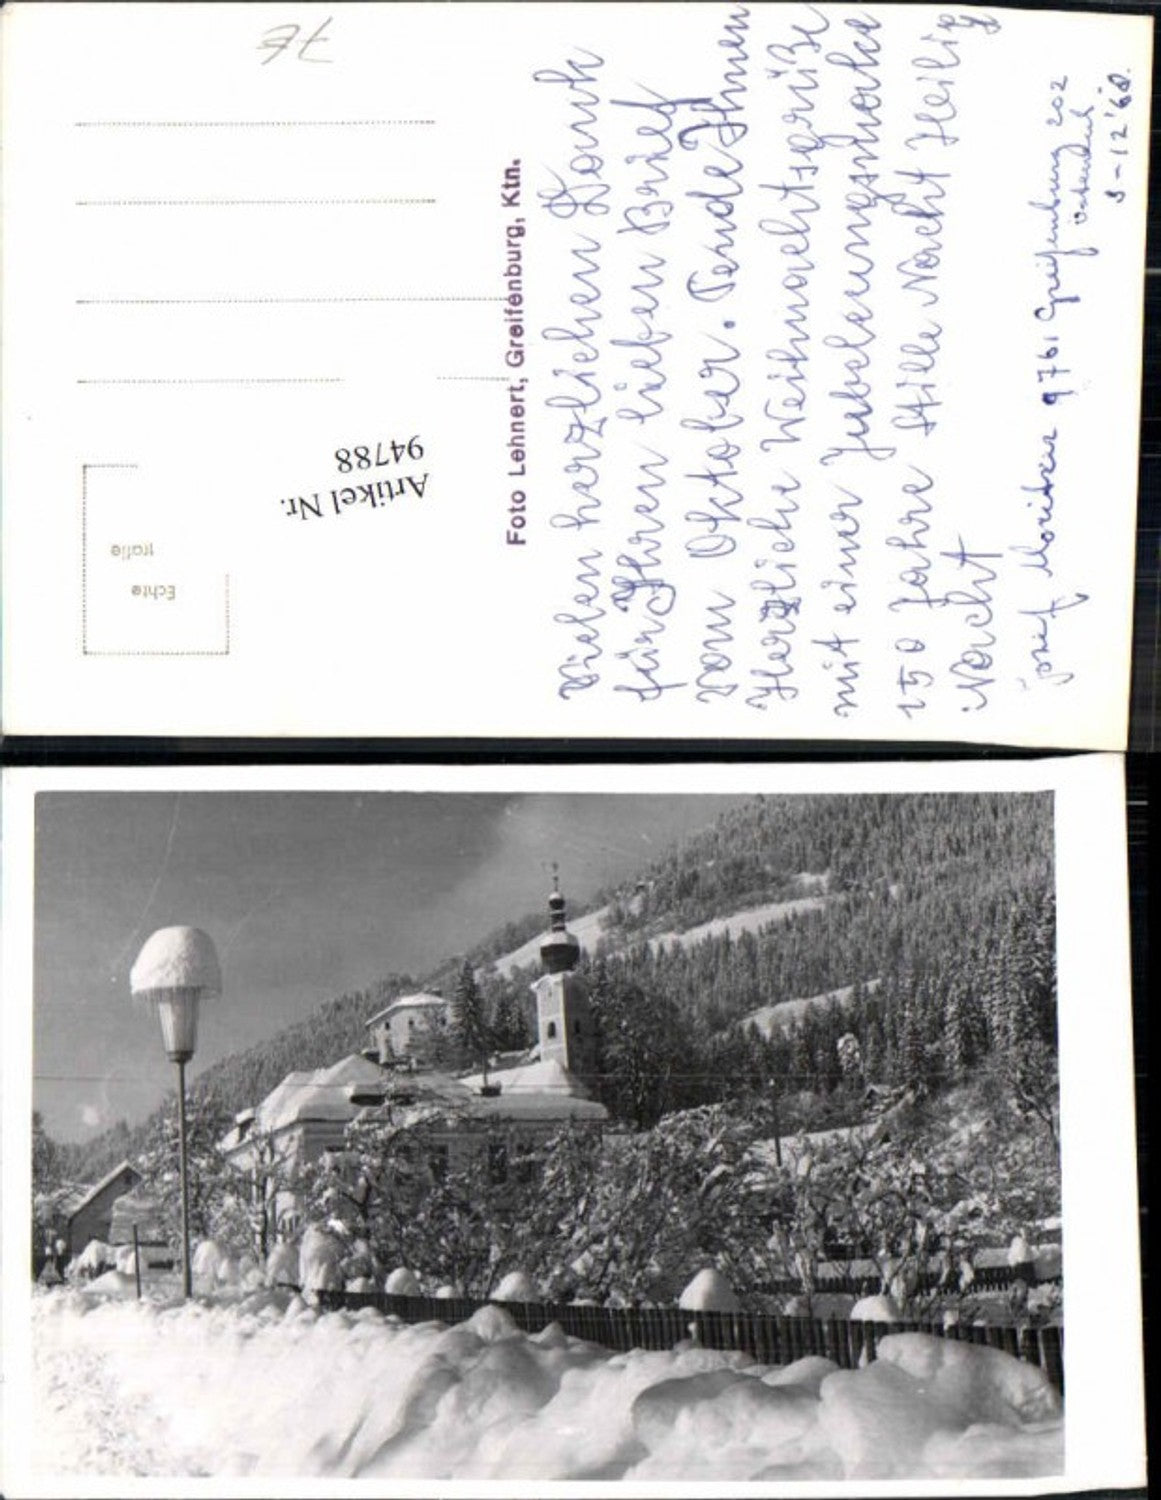 7€
Echte
trafie
Artikel Nr.
94788
Foto Lehnert, Greifenburg, Ktn.
Vielen herzlichen Dank
für Ihren lieben Brief
vom Oktober. Sende Ihnen
Herzliche Weihnachtsgrüße
mit einer Jubeleumgsmarke
150 Jahre Stille Nacht Heilig
Nacht
Josef Moritzer 9761 Greifenburg 202
8-12'68.